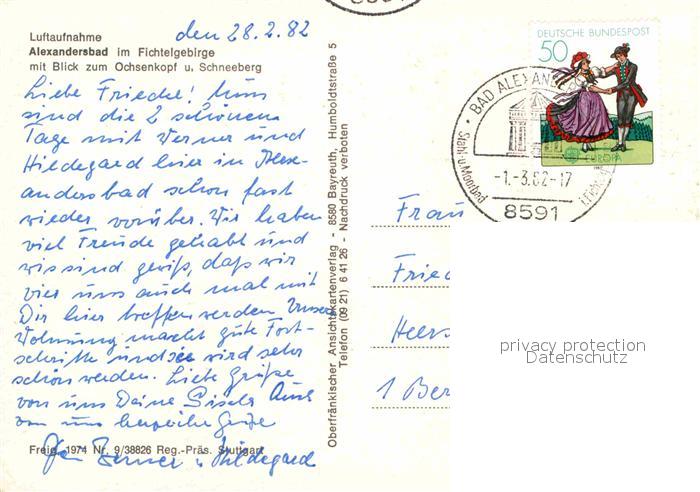 Luftaufnahme
Alexandersbad im Fichtelgebirge
mit Blick zum Ochsenkopf u. Schneeberg
den 28.2.82
Liebe Friedel! Nun
sind die 2 schönen
Tage mit Werner und
Hildegard hier in Alex-
andersbad schon fast
wieder vorüber. Wir haben
viel Freude gehabt und
wir sind gewiß, daß wir
vier uns auch mal mit
Dir hier treffen werden. Unsere
Wohnung macht gute Fort-
schritte und sie wird sehr
schön werden. Liebe Grüße
von uns Deine Gisela Auch
von uns herzliche Grüße
Werner u. Hildegard
Freig. 1974 Nr. 9/38826 Reg.-Präs. Stuttgart
Oberfränkischer Ansichtskartenverlag - 8580 Bayreuth, Humboldtstraße 5
Telefon (09 21) 6 41 26 - Nachdruck verboten
DEUTSCHE BUNDESPOST
50
EUROPA
BAD ALEXANDE
Stahl-u.Moorbad
-1.-3.82-17
8591
Frau
Fried
Heers
1 Ber
privacy protection
Datenschutz